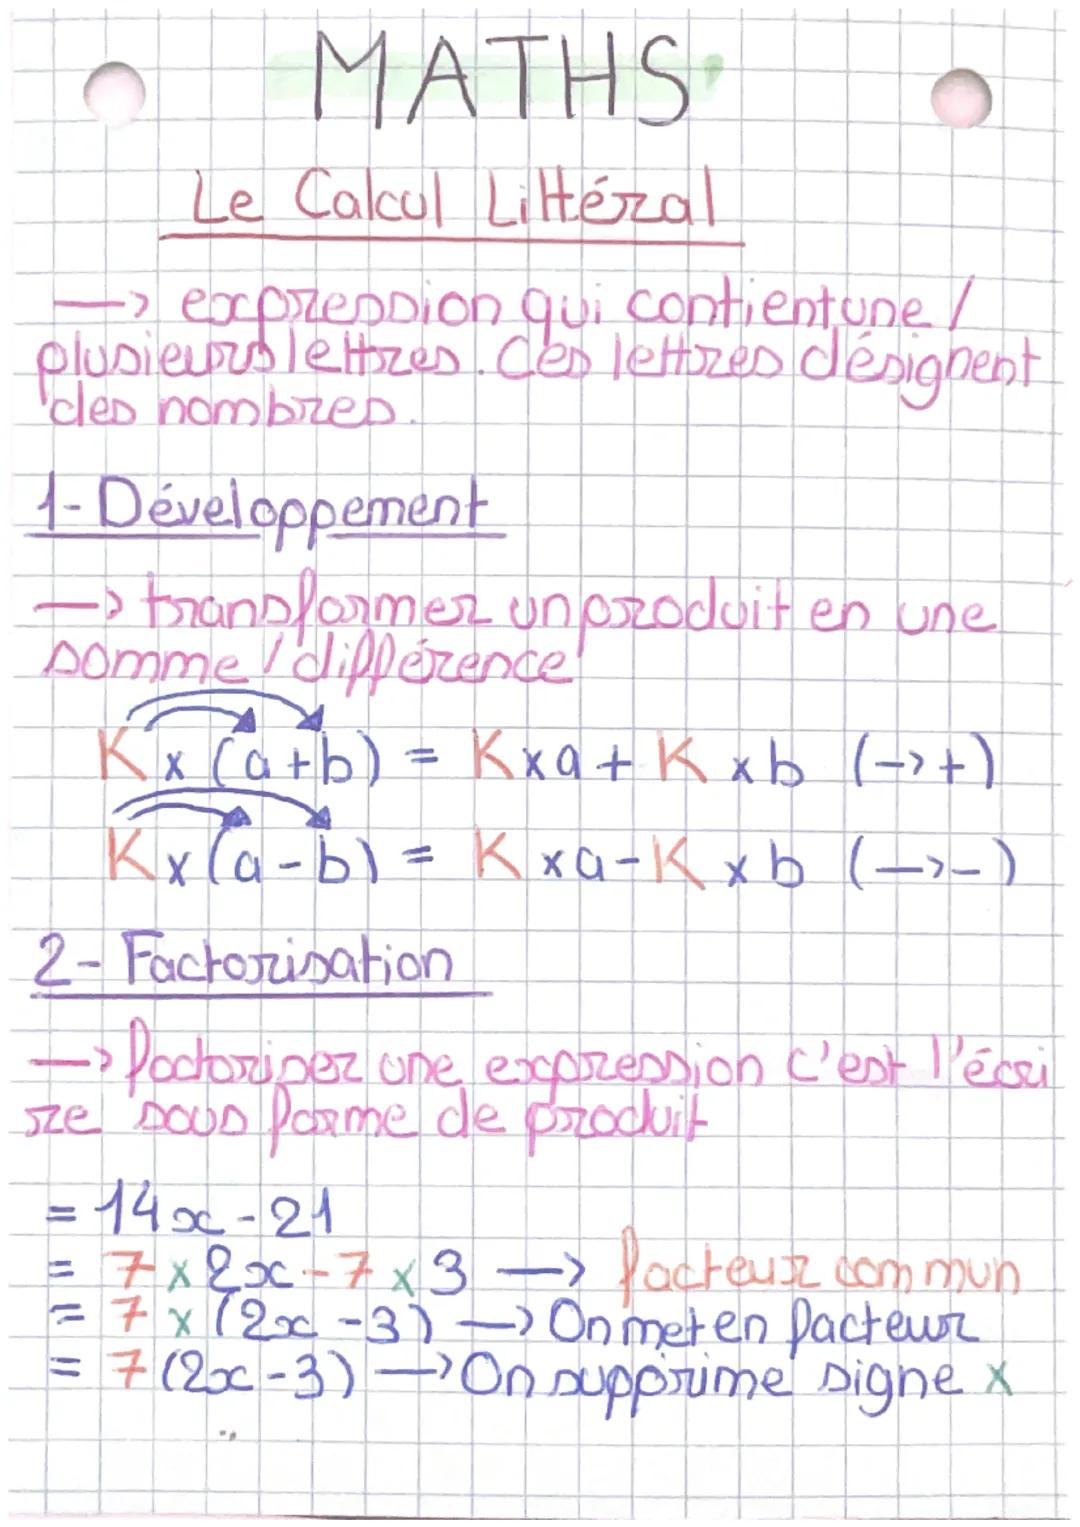 MATHS
Le Calcul Littéral
—> expression qui contient une /
plusieurs lettres. Ces lettres désignent
des nombres.
1- Développement
—> transformer un produit en une
somme / différence
K x (a+b) = K x a + K x b (->+)
K x (a-b) = K x a - K x b (->-)
2- Factorisation
—> factoriser une expression c'est l'écri
re sous forme de produit
= 14x - 21
= 7 x 2x - 7 x 3 —> facteur commun
= 7 x (2x - 3) —> On met en facteur
= 7 (2x - 3) —> On supprime signe x